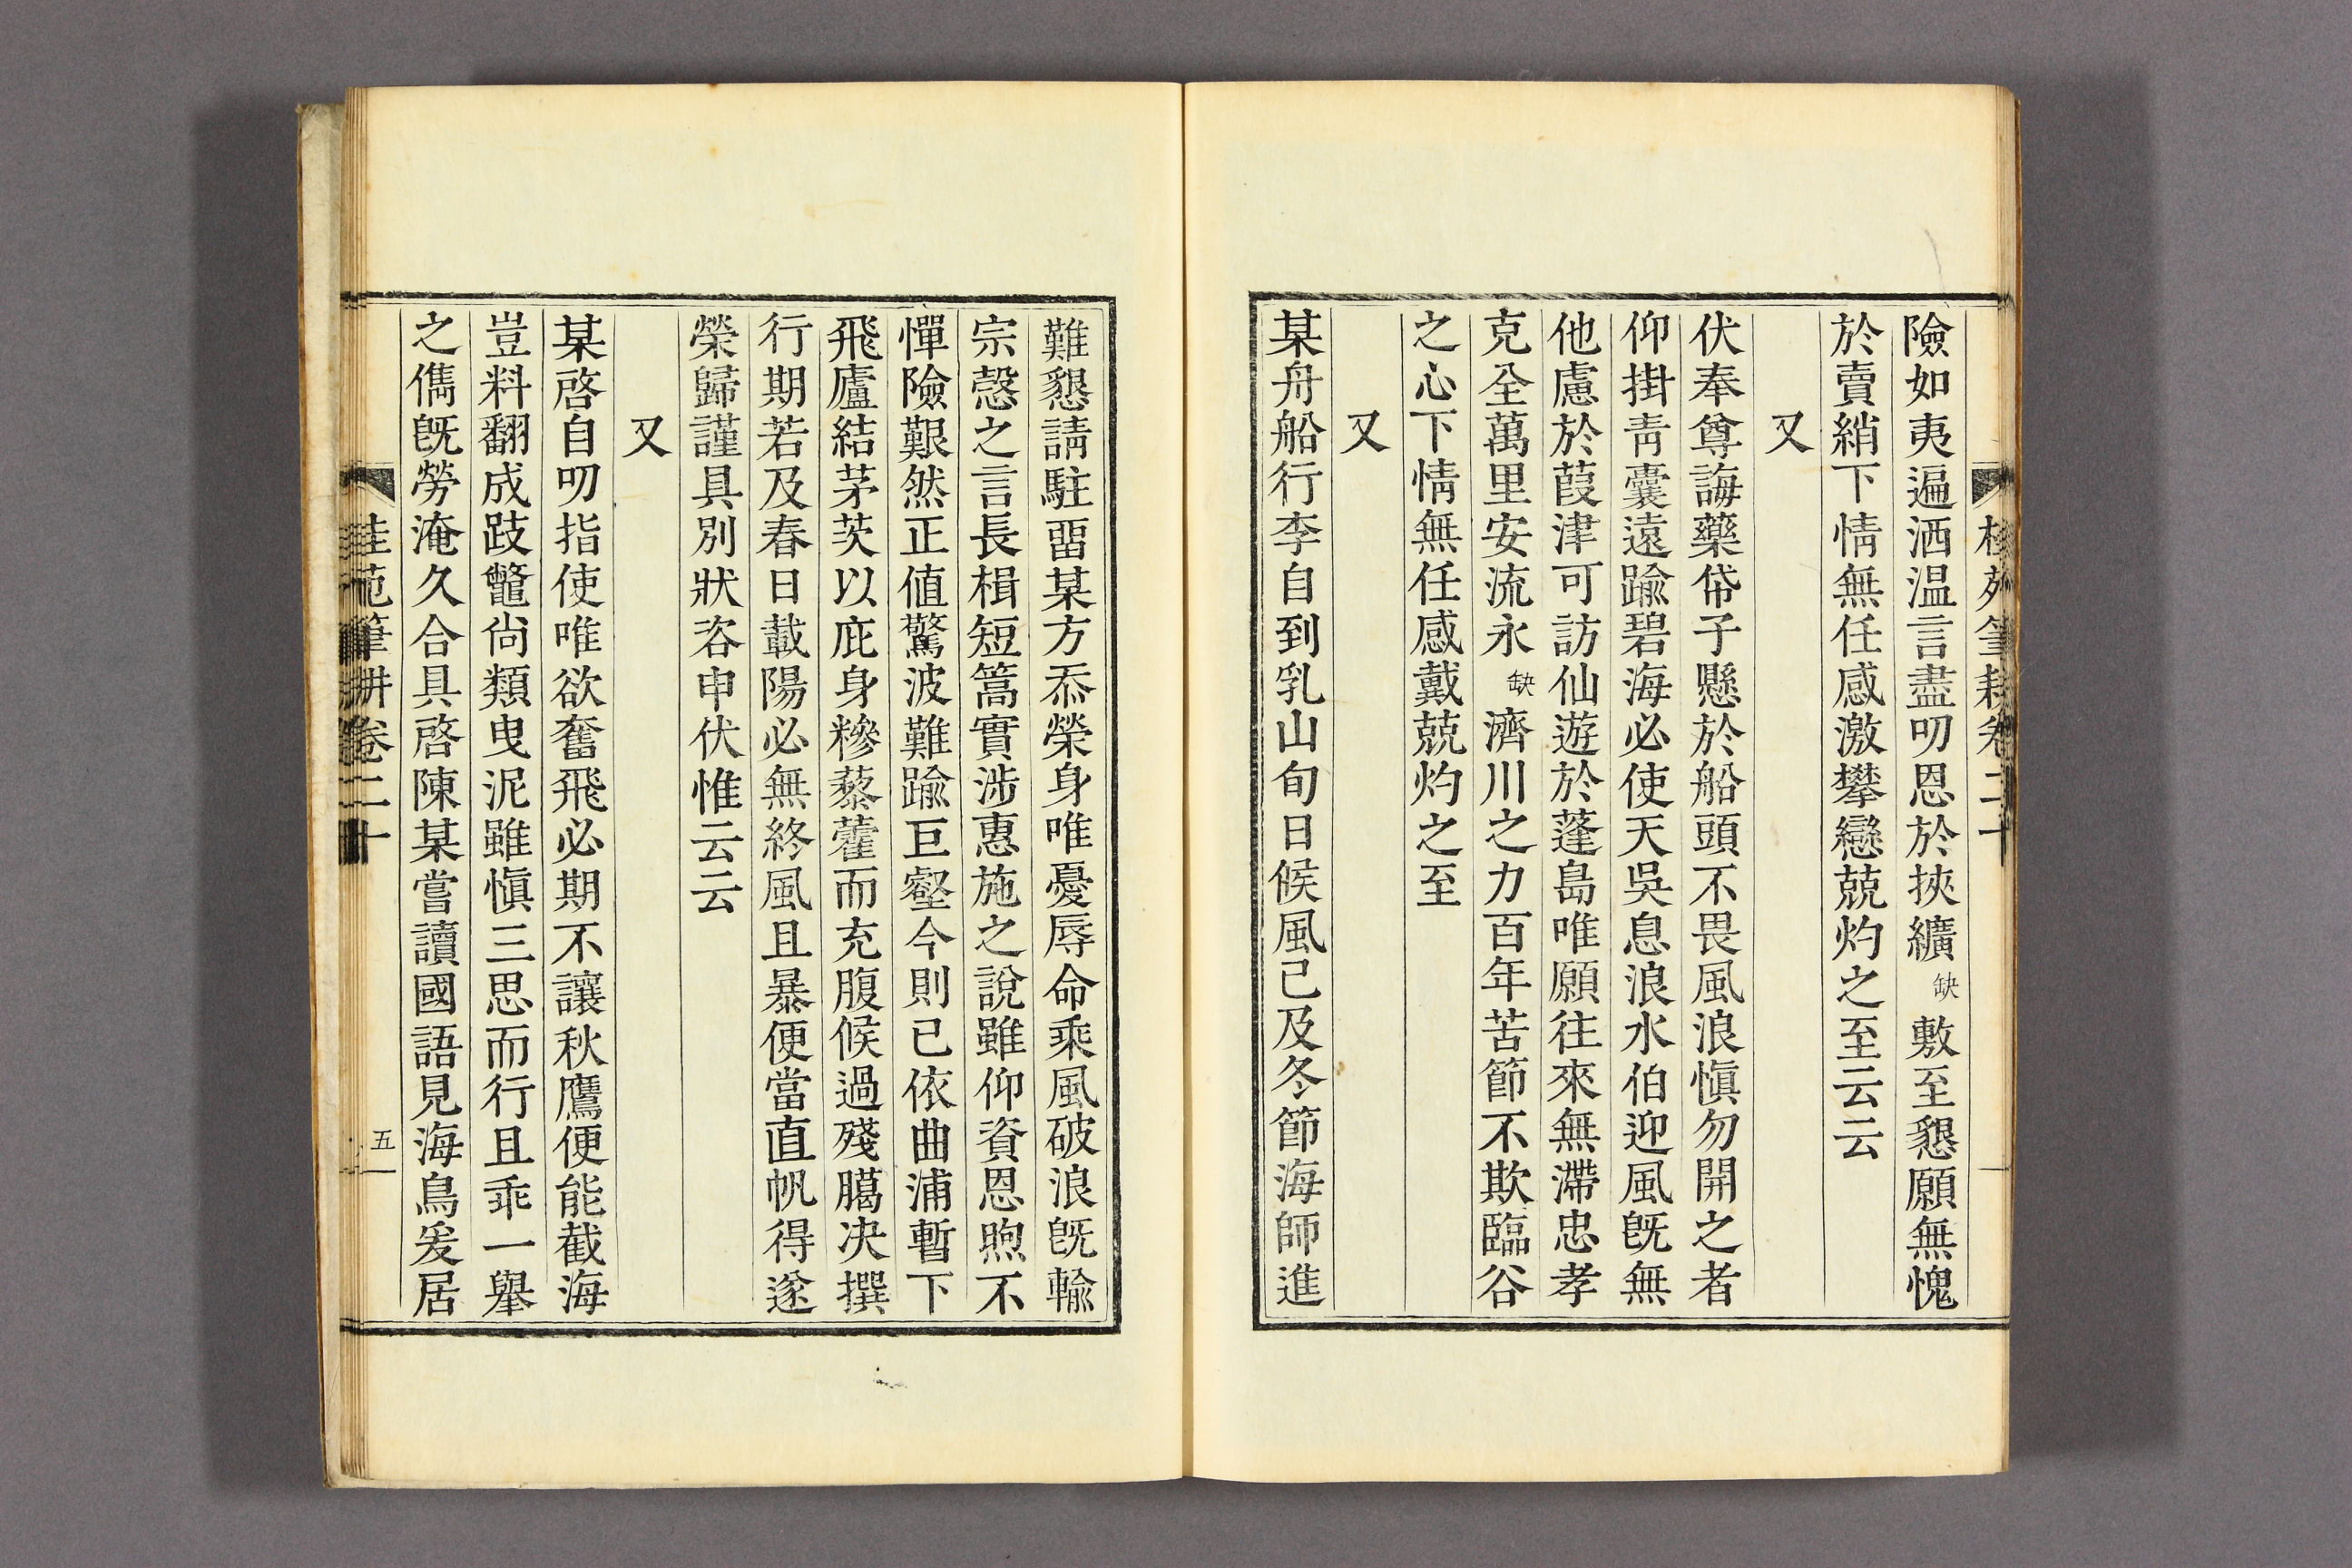 桂苑筆耕卷二十
險如夷遍洒温言盡叨恩於挾纊缺敷至懇願無愧
於賣綃下情無任感激攀戀兢灼之至云云
又
伏奉尊誨藥帒子懸於船頭不畏風浪愼勿開之者
仰掛靑囊遠踰碧海必使天吳息浪水伯迎風旣無
他慮於葭津可訪仙遊於蓬島唯願往來無滯忠孝
克全萬里安流永缺濟川之力百年苦節不欺臨谷
之心下情無任感戴兢灼之至
又
某舟船行李自到乳山旬日候風已及冬節海師進
難懇請駐畱某方忝榮身唯憂辱命乘風破浪旣輸
宗慤之言長楫短篙實涉惠施之說雖仰資恩煦不
憚險艱然正値驚波難踰巨壑今則已依曲浦暫下
飛廬結茅茨以庇身糝藜藿而充腹候過殘臈决撰
行期若及春日載陽必無終風且暴便當直帆得遂
榮歸謹具別狀咨申伏惟云云
又
某啓自叨指使唯欲奮飛必期不讓秋鷹便能截海
豈料翻成跂鼈尙類曳泥雖愼三思而行且乖一擧
之儁旣勞淹久合具啓陳某嘗讀國語見海鳥爰居
桂苑筆耕卷二十
五